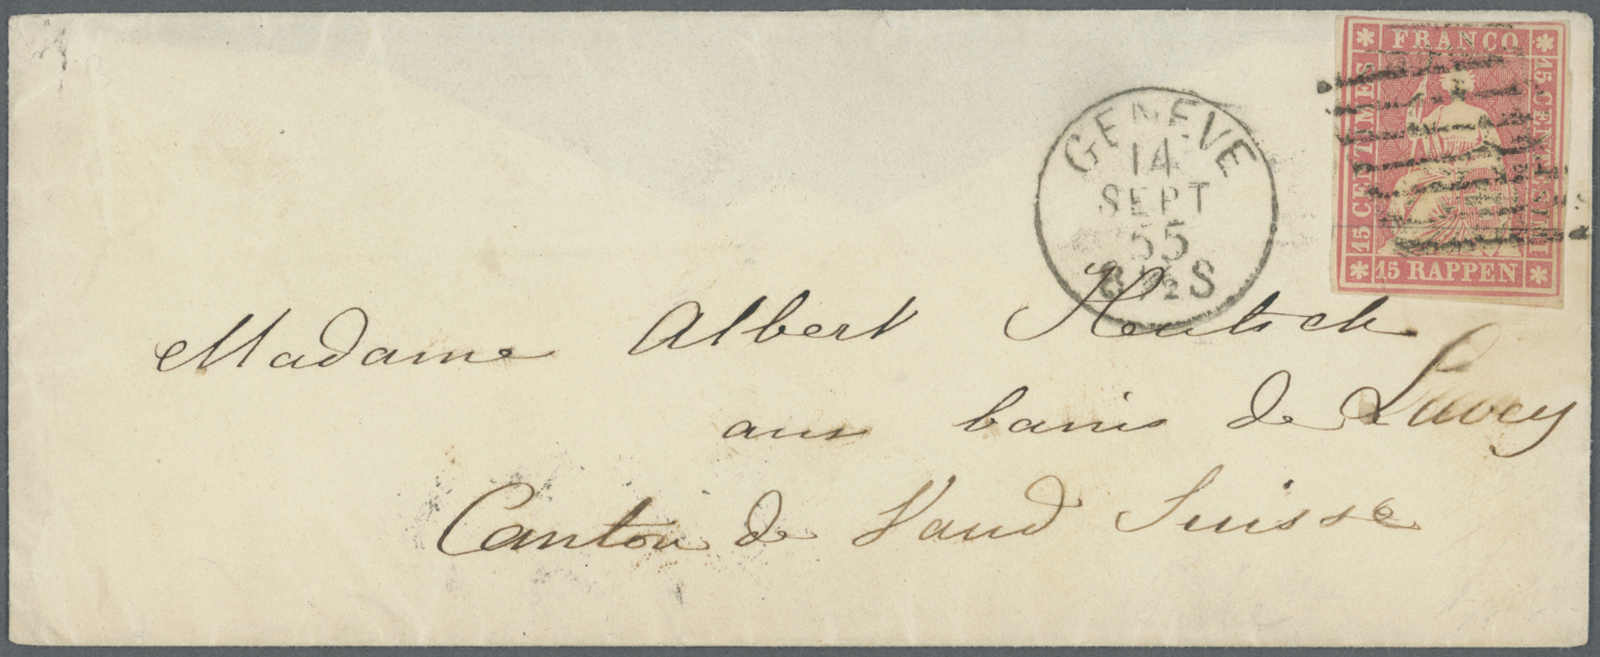 FRANCO
15 CENTIMES
15 CENTESIMI
15 RAPPEN
GENEVE
14
SEPT
55
8 1/2 S
Madame Albert Hentsch
aux bains de Lavey
Canton de Vaud Suisse